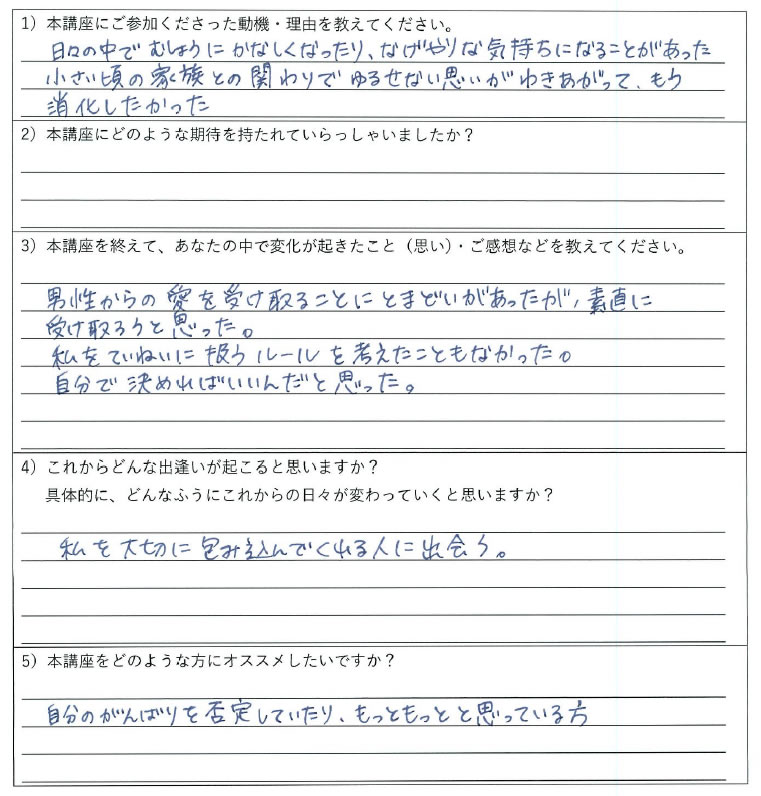 1）本講座にご参加くださった動機・理由を教えてください。
日々の中でむしょうにかなしくなったり、なげやりな気持ちになることがあった
小さい頃の家族との関わりでゆるせない思いがわきあがって、もう
消化したかった
2）本講座にどのような期待を持たれていらっしゃいましたか？
3）本講座を終えて、あなたの中で変化が起きたこと（思い）・ご感想などを教えてください。
男性からの愛を受け取ることにとまどいがあったが、素直に
受け取ろうと思った。
私をていねいに扱うルールを考えたこともなかった。
自分で決めればいいんだと思った。
4）これからどんな出逢いが起こると思いますか？
具体的に、どんなふうにこれからの日々が変わっていくと思いますか？
私を大切に包み込んでくれる人に出会う。
5）本講座をどのような方にオススメしたいですか？
自分のがんばりを否定していたり、もっともっとと思っている方